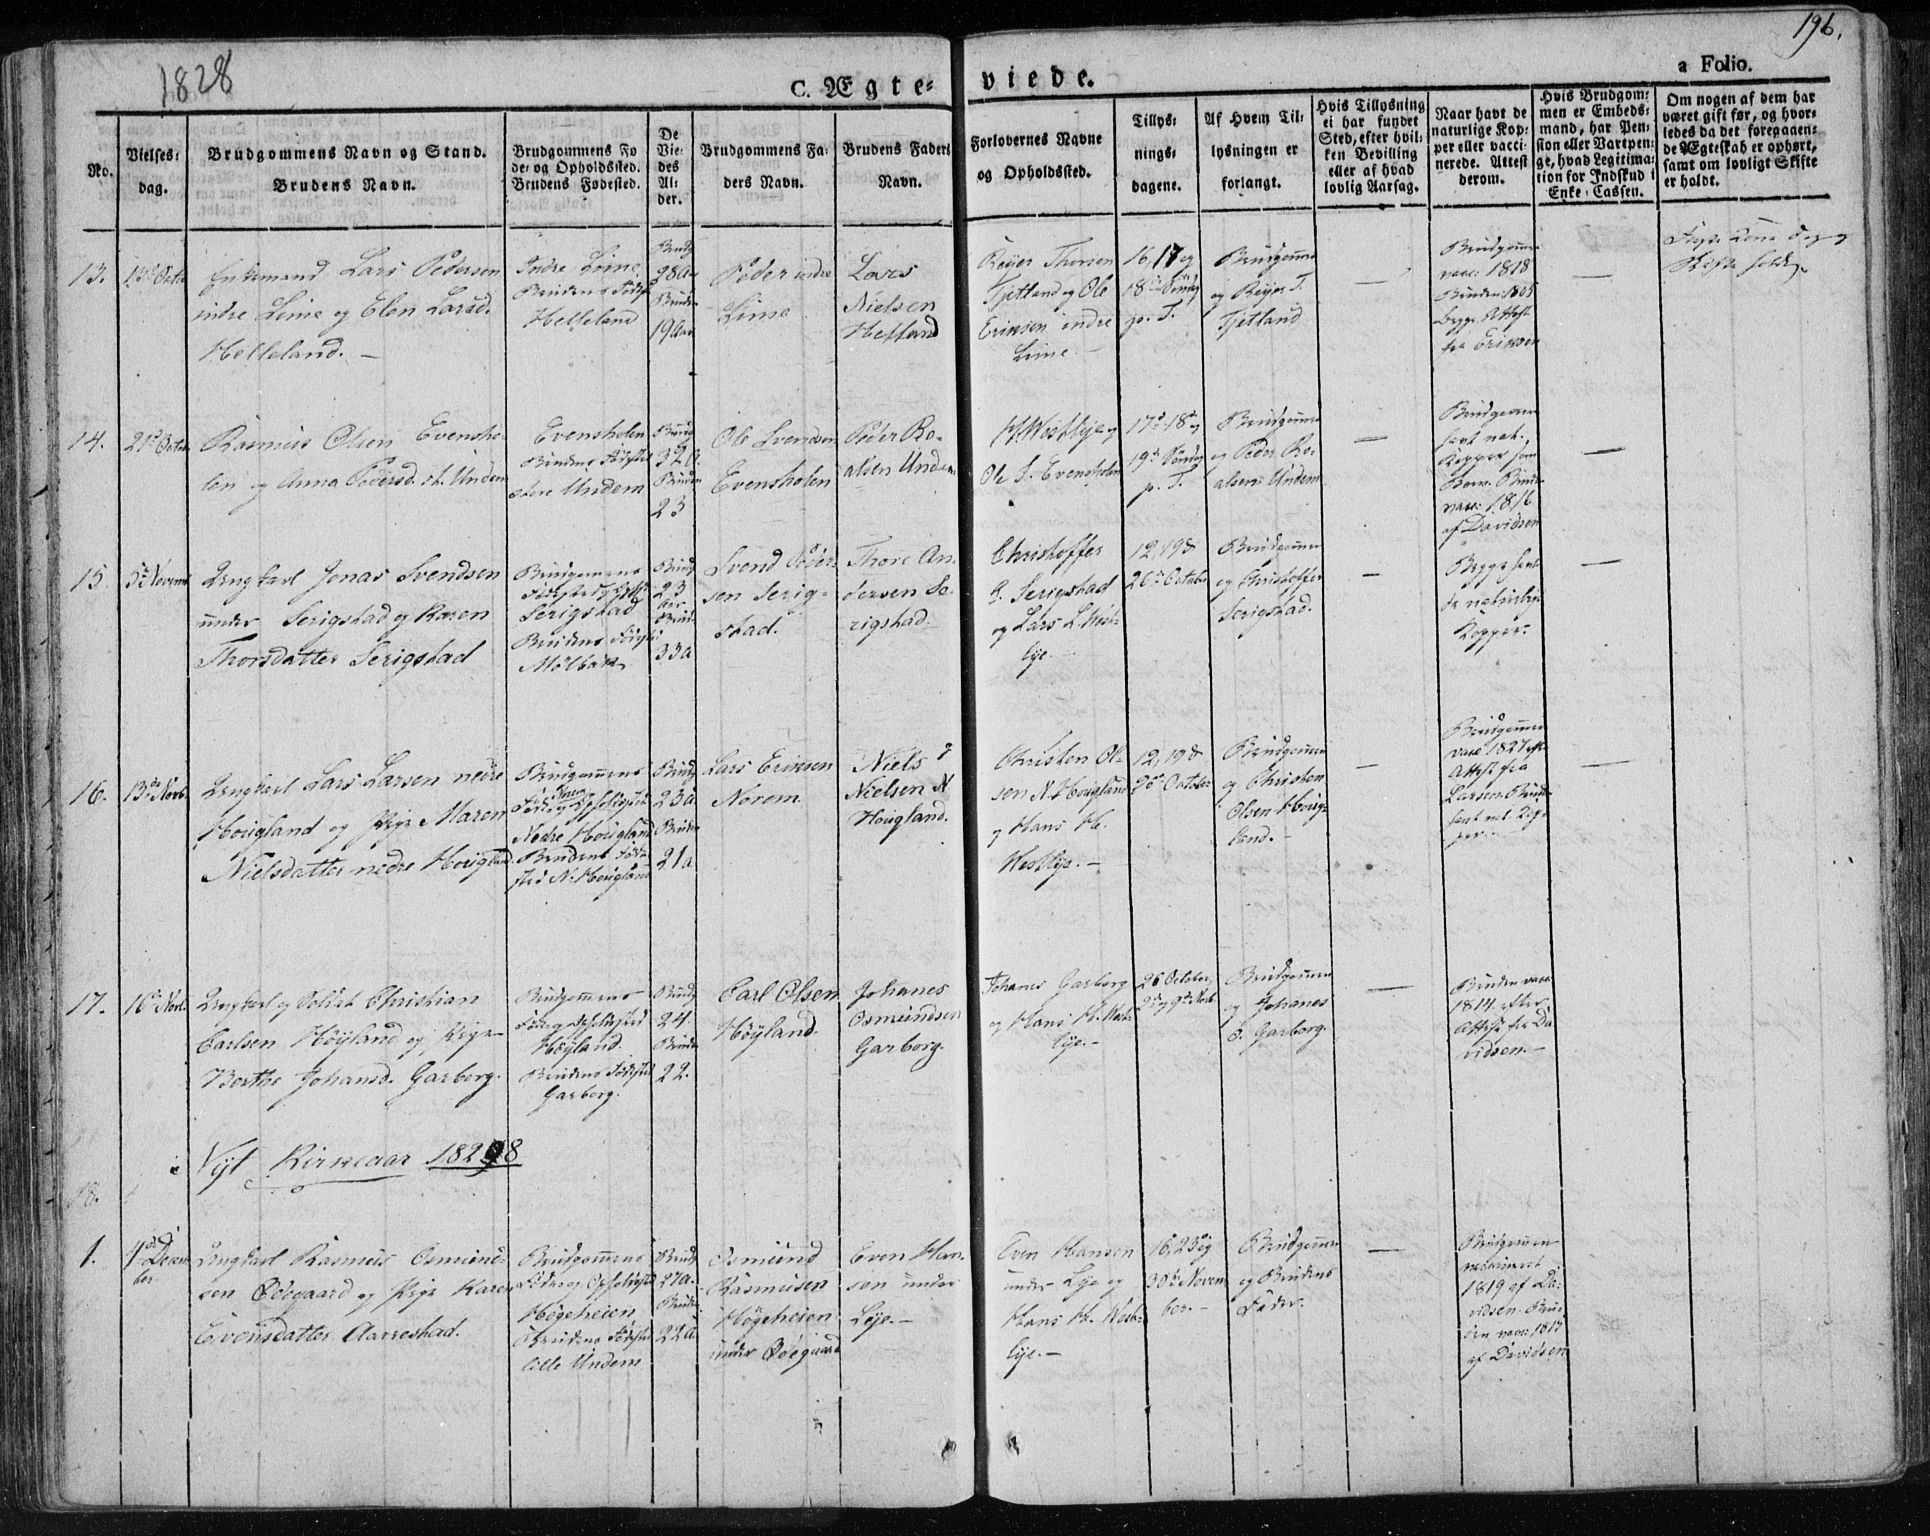 1828
196.
C. Ægte-
viede.
a Folio.
No.
Vielses-
dag.
Brudgommens Navn og Stand.
Brudens Navn.
Brudgommens Fø
de- og Opholdssted.
Brudens Fødested.
De
Vie-
des
Al-
der.
Brudgommens Fa-
ders Navn.
Brudens Faders
Navn.
Forlovernes Navne
og Opholdssted.
Tillys-
nings-
dagene.
Af Hvem Til-
lysningen er
forlangt.
Hvis Tillysning
ei har fundet
Sted, efter hvil-
ken Bevilling
eller af hvad
lovlig Aarsag.
Naar havt de
naturlige Kop-
per eller vacci-
nerede. Attest
derom.
Hvis Brudgom-
men er Embeds-
mand, har Pen-
sion eller Vartpen-
ge, hvad Legitima-
tion for Indskud i
Enke-Cassen.
Om nogen af dem har
været gift før, og hvor-
ledes da det foregaaen-
de Ægteskab er ophørt,
samt om lovligt Skifte
er holdt.
13.
Enkemand Lars Pedersen
indre Lime og Elen Larsd.
Helleland. —
Indre Lime,
Brudens Fødested
Helleland
Brudg
28 Aar
Bruden
19 Aar
Peder indre
Lime
Lars
Nielsen
Helland
Reijer Thorsen
Tjetland og Ole
Eriksen indre
Lime. —
16, 17 og
18de Søndag
p. T.
Brudgommen
og Reijer T.
Tjetland
—
Brudgommen
vacc: 1818
Bruden
—
14.
21de Octobr
Rasmus Olsen Evensho-
len og Anna Pedersd. st. Undem
Evensholen
Brudens Fødested
store Undem
Brudg
32 A.
Bruden
23
Ole Svendsen
Evensholen
Peder Ro-
alsen Undem
H. Westlye og
Ole S. Evensholen
17de 18de og
19de Søndag
p. T.
Brudgommen
og Peder Ro-
alsen Undem
—
Brudgommen
havt nat.
Kopper som
Barn. Brud.
vacc: 1816
af Davidsen
—
15.
5te Novemb
Ungkarl Jonas Svendsen
under Serigstad og Karen
Thorsdatter Serigstad
Brudgommens
Serigstad
Brudens Fødested
Mølbak
Brudg
23
Brud
33 a
Svend Peder-
sen Serig-
stad.
Thore An-
dersen Se-
rigstad.
Christoffer
Serigstad
og Lars L. West-
lye.
12, 19 &
26de October
Brudgommen
og Christoffer
Serigstad.
—
Begge havt
de naturlige
Kopper.
—
16.
13de Novb.
Ungkarl Lars Larsen nedre
Hougland og Pige Maren
Nielsdatter nedre Hougland
Brudgommens
Nedre Hougland
Brudens Føde-
sted N. Hougland
Brudg
23 a
Bruden
21 a
Lars Eriksen
Norem
Niels
Nielsen N
Hougland.
Christen Ol-
sen N. Hougland
og Hans H.
Westlye. —
12, 19 &
26de October
Brudgommen
og Christen
Olsen Houg-
land. —
—
Brudgommen
vacc 1827 eft.
Attest fra
Larsen. Brud
havt nat. Kop-
per.
—
17.
Ungkarl og Soldat Christian
Carlsen Høyland og Pige
Berthe Johansd. Garborg.
Brudgommens
Føde og Opholdssted
Høyland.
Brudens Fødested
Garborg.
Brudg
24.
Bruden
22.
Carl Olsen
Høyland.
Johanes
Osmundsen
Garborg.
Johanes Garborg
og Hans H. West-
lye. —
26 October,
2de og 9de Novb.
Brudgommen
og Johanes
O. Garborg.
—
Bruden vacc
1814 efter
Attest fra Da-
vidsen. —
Nyt Kirkeaar 1828
18.
1.
4de Decem
ber
Ungkarl Rasmus Osmund-
sen Ødegaard og Pige Karen
Evensdatter Aarrestad.
Brudgommens
Føde og Opholdssted
Høgeheien
Brudens Fødested
Lille Undem
Brudg
27 a.
Bruden
22 a
Osmund
Rasmusen
Høgeheien
under Ødegaard
Even Han-
sen under
Lye. —
Even Hansen
under Lye og
Hans H. West-
lye. —
16, 23 og
30de Novem
ber. —
Brudgommen
og Brudens
Fader.
—
Brudgommen
vaccineret
1819 af Da-
vidsen. Bru-
den vacc 1817
af Davidsen